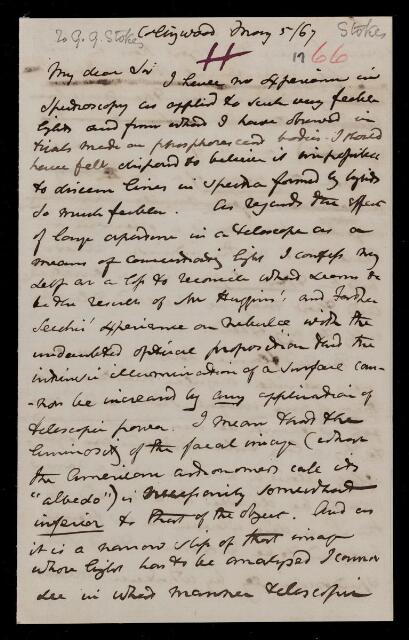 To G. G. Stokes Collingwood May 5/67 Stokes
H 17 66
My dear Sir
I have no experience in
spectroscopy as applied to such very feeble
lights and from what I have observed in
trials made on phosphorescent bodies I should
have felt disposed to believe it impossible
to discern lines in spectra formed by lights
so much feebler. As regards the effect
of large aperture in a telescope as a
means of concentrating light I confess my
self at a loss to reconcile what seems to
be the results of Mr Huggins' and Father
Secchi's experience on nebulae with the
undoubted optical proposition that the
intrinsic illumination of a surface can-
-not be increased by any application of
telescopic power. I mean that the
luminosity of the focal image (what
the American astronomers call its
"albedo") is necessarily somewhat
inferior to that of the object. And as
it is a narrow slip of that image
whose light has to be analysed I cannot
see in what manner telescopic